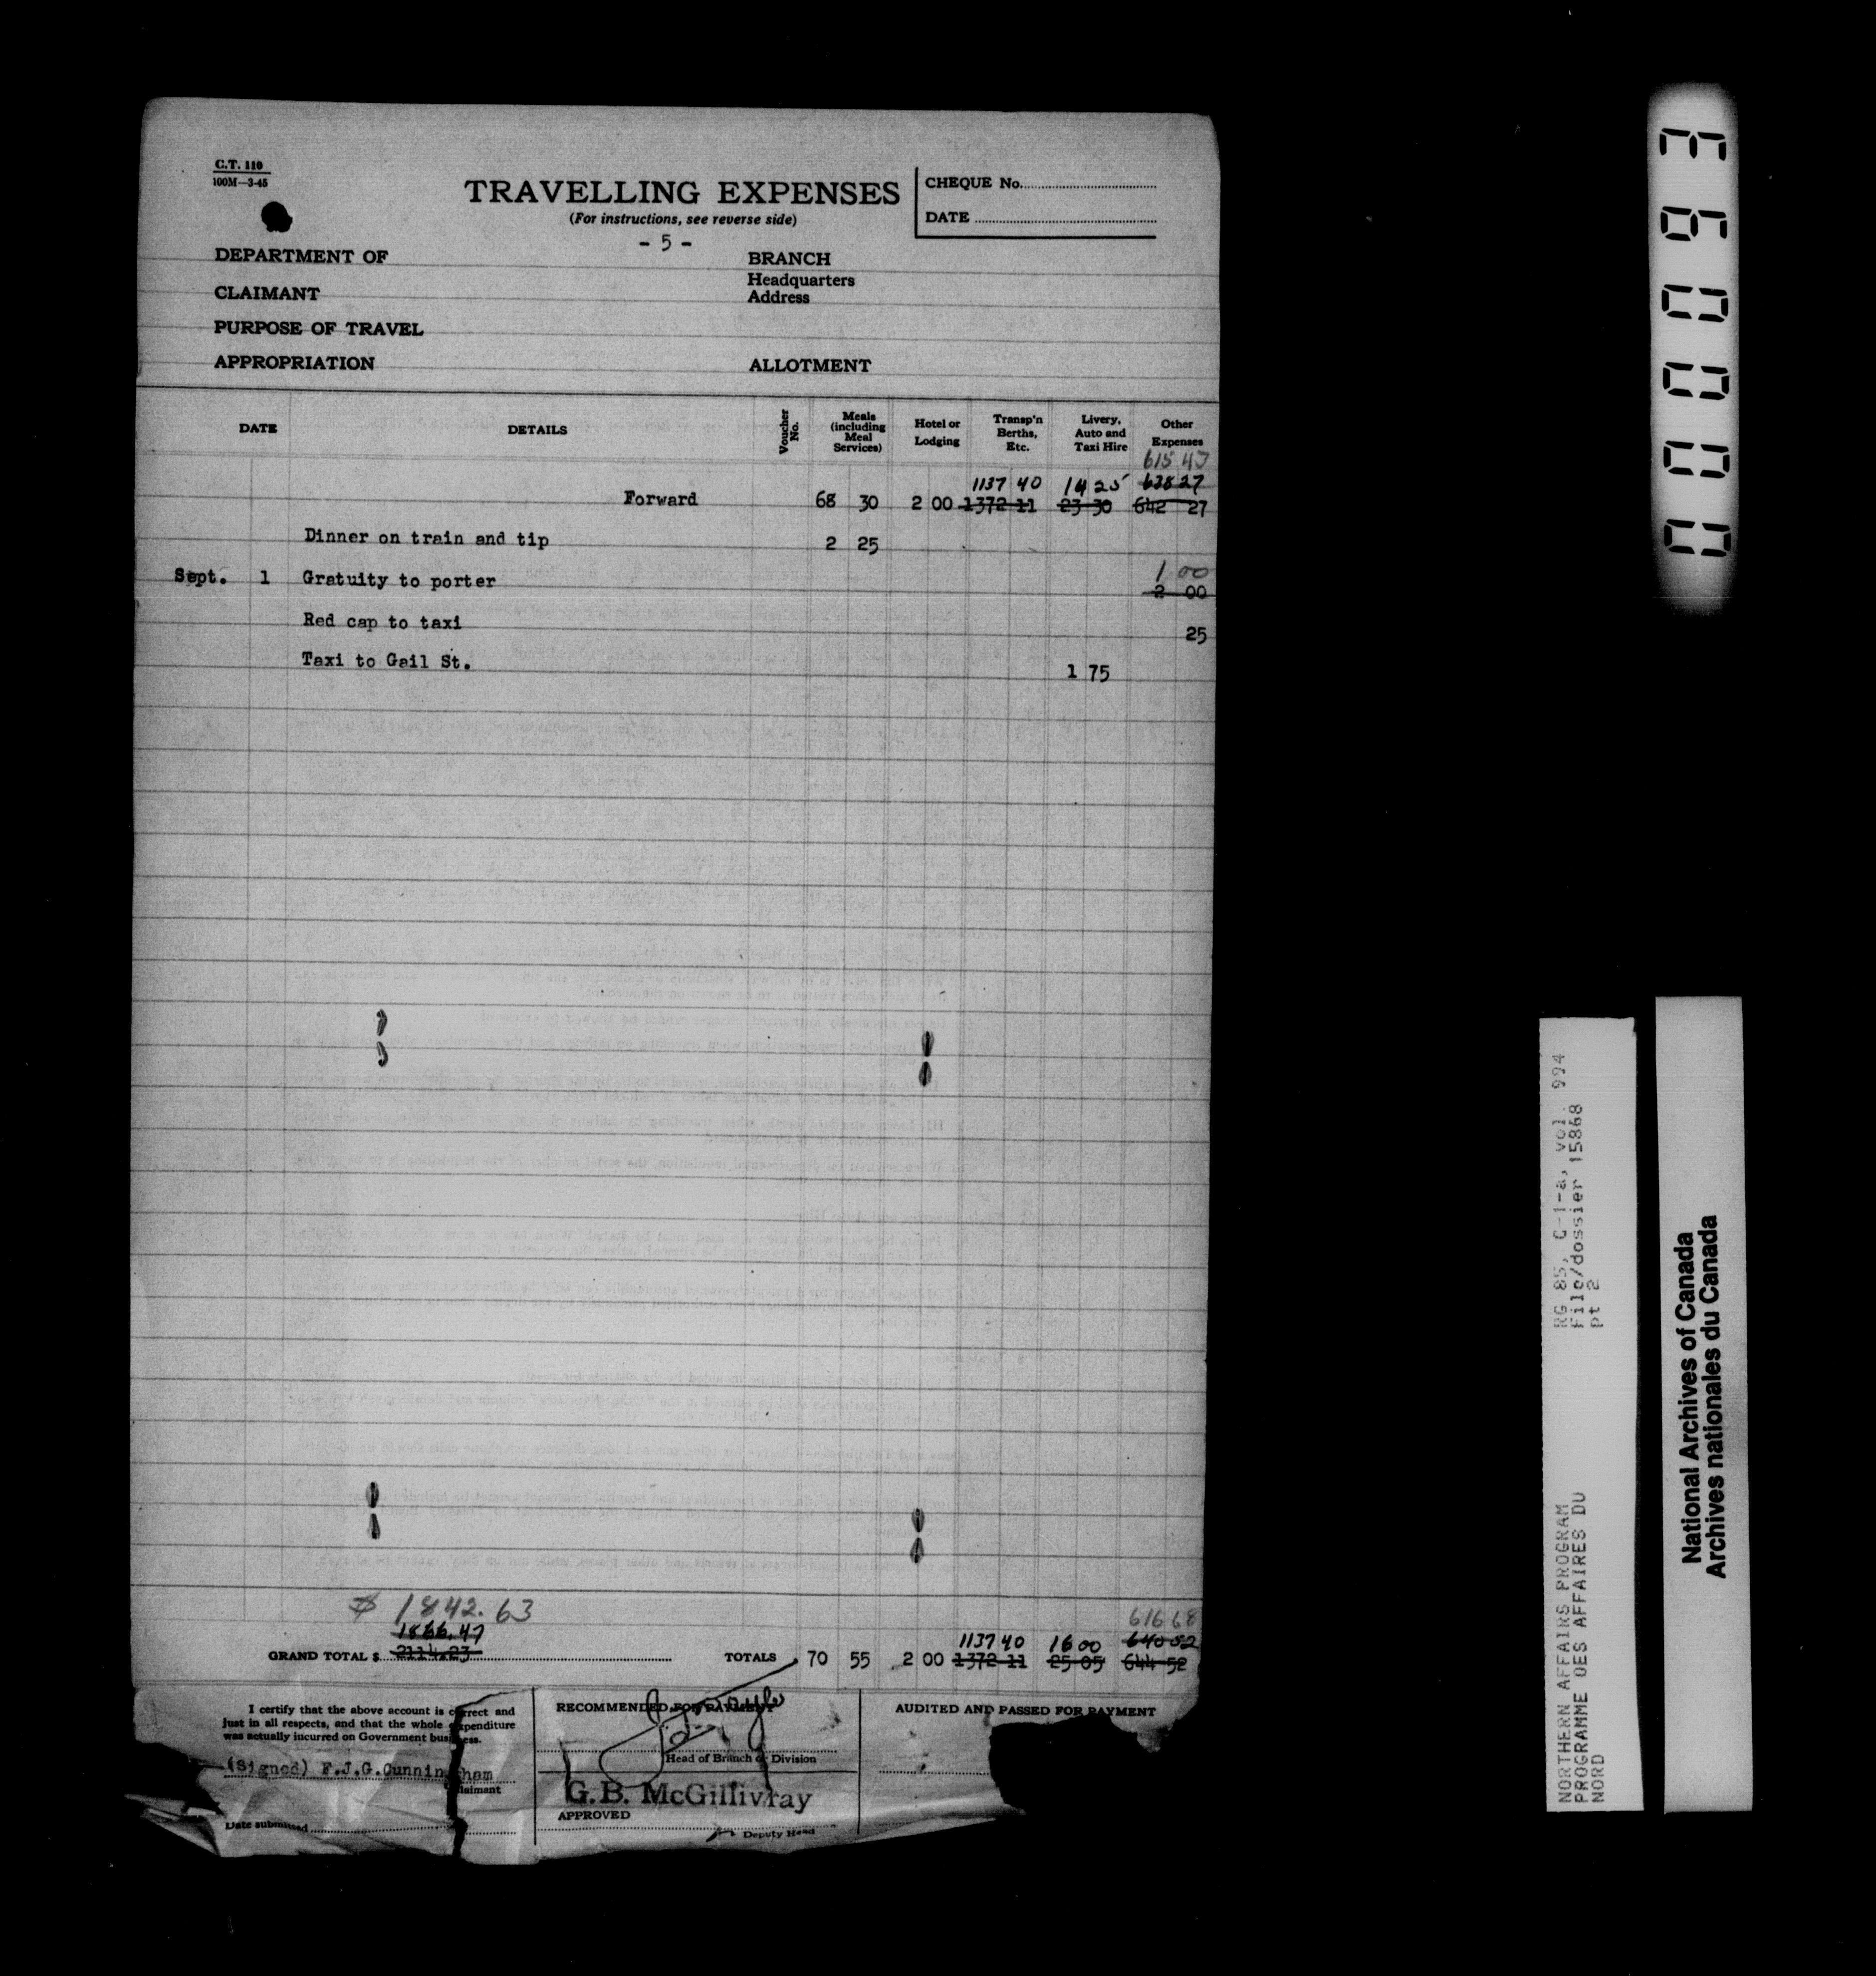 C.T. 110
100M—3-45
TRAVELLING EXPENSES
(For instructions, see reverse side)
- 5 -
CHEQUE No.
DATE
DEPARTMENT OF
BRANCH
CLAIMANT
Headquarters
Address
PURPOSE OF TRAVEL
APPROPRIATION
ALLOTMENT
DATE DETAILS Voucher No. Meals (including Meal Services) Hotel or Lodging Transp'n Berths, Etc. Livery, Auto and Taxi Hire Other Expenses
615 43
1137 40 14 25 638 27
Forward 68 30 2 00 1372 11 23 30 642 27
Dinner on train and tip 2 25
1 00
Sept. 1 Gratuity to porter 2 00
Red cap to taxi 25
Taxi to Gail St. 1 75
$ 1842.63 616 68
1866.47 1137 40 16 00 640 52
GRAND TOTAL $ 2114.23 TOTALS 70 55 2 00 1372 11 25 05 644 52
I certify that the above account is correct and
just in all respects, and that the whole expenditure
was actually incurred on Government business.
(Signed) F.J.G.Cunningham
Claimant
Date submitted
RECOMMENDED FOR PAYMENT
Head of Branch or Division
G.B. McGillivray
APPROVED
Deputy Head
AUDITED AND PASSED FOR PAYMENT
RG 85, C-1-a, vol. 994
File/dossier 15868
pt 2
NORTHERN AFFAIRS PROGRAM
PROGRAMME DES AFFAIRES DU
NORD
National Archives of Canada
Archives nationales du Canada